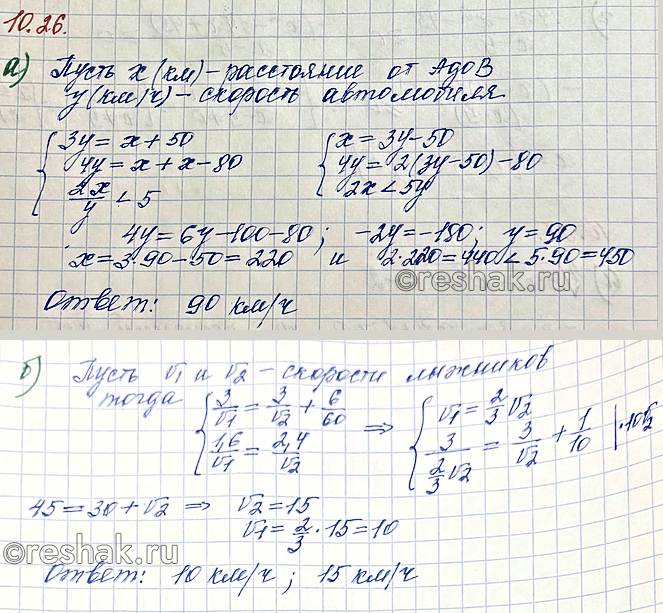 10.26.
а) Пусть x (км) – расстояние от А до В
y (км/ч) – скорость автомобиля
{ 3y = x + 50
4y = x + x – 80
2x/y < 5
{ x = 3y – 50
4y = 2(3y – 50) – 80
2x < 5y
4y = 6y – 100 – 80 ; –2y = –180 ; y = 90
x = 3·90 – 50 = 220 и 2·220 = 440 < 5·90 = 450
Ответ: 90 км/ч
б) Пусть v1 и v2 – скорости лыжников
тогда { 3/v1 = 3/v2 + 6/60
1,6/v1 = 2,4/v2
⇒ { v1 = 2/3 v2
3/(2/3 v2) = 3/v2 + 1/10 | ·10v2
45 = 30 + v2 ⇒ v2 = 15
v1 = 2/3 · 15 = 10
Ответ: 10 км/ч ; 15 км/ч
©reshak.ru
©reshak.ru